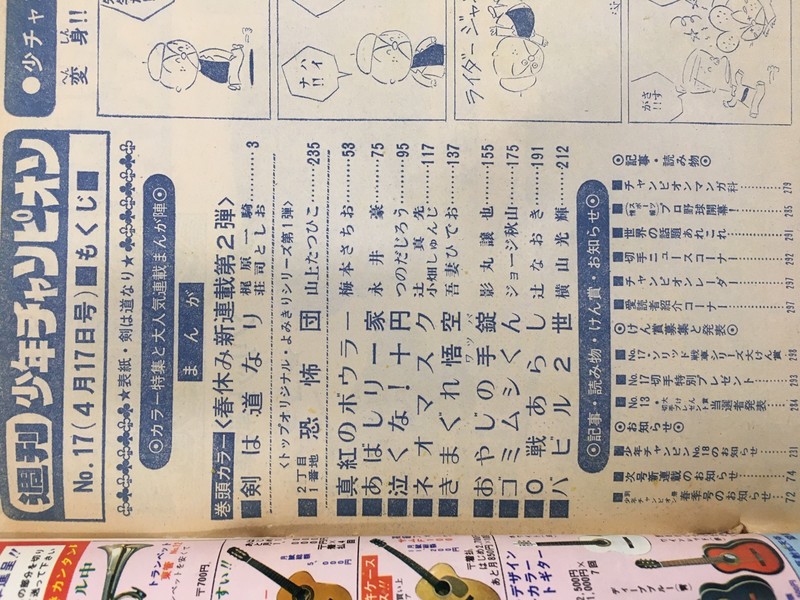 ●少チャ
変身!!
へん しん
ハイナ!!
ライダージャ
がさす!!
週刊 少年チャンピオン
No.17(4月17日号)■もくじ■
★表紙・剣は道なり★
◎カラー特集と大人気連載まんが陣◎
まんが
巻頭カラー〈春休み新連載第2弾〉
■剣は道なり 梶原一騎 荘司としお……3
〈トップオリジナル・よみきりシリーズ第1弾〉
■2丁目1番地 恐怖団 山上たつひこ……235
■真紅のボウラー 梅本さちお……53
■あばしり一家 永井豪……75
■泣くな!十円 つのだじろう……95
■ネオマスク 辻真先 小畑しゅんじ……117
■きまぐれ悟空 吾妻ひでお……137
■おやじの手錠 ワッパ 影丸譲也……155
■ゴミムシくん ジョージ秋山……175
■0戦あらし 辻なおき……191
■バビル2世 横山光輝……212
◎記事・読み物・けん賞・お知らせ◎
◎記事・読み物◎
■チャンピオンマンガ科……279
■プロ野球開幕!……285
■世界の話題あれこれ……291
■切手ニュースコーナー……292
■チャンピオンレーダー……297
■愛読者紹介コーナー……297
◎けん賞募集と発表◎
■No.17・ソリッド戦車シリーズ大けん賞……298
■No.17切手特別プレゼント……293
■No.13 当選者発表……284
◎お知らせ◎
■少年チャンピオンNo.18のお知らせ……231
■次号新連載のお知らせ……74
■別冊少年チャンピオン春季号のお知らせ……72
呈!!
の部分を切り
送って下さい
キカンタン!
ル中
トランペット
〒700円
すい!!
キケース
デザインカラートギター
ディープブルー